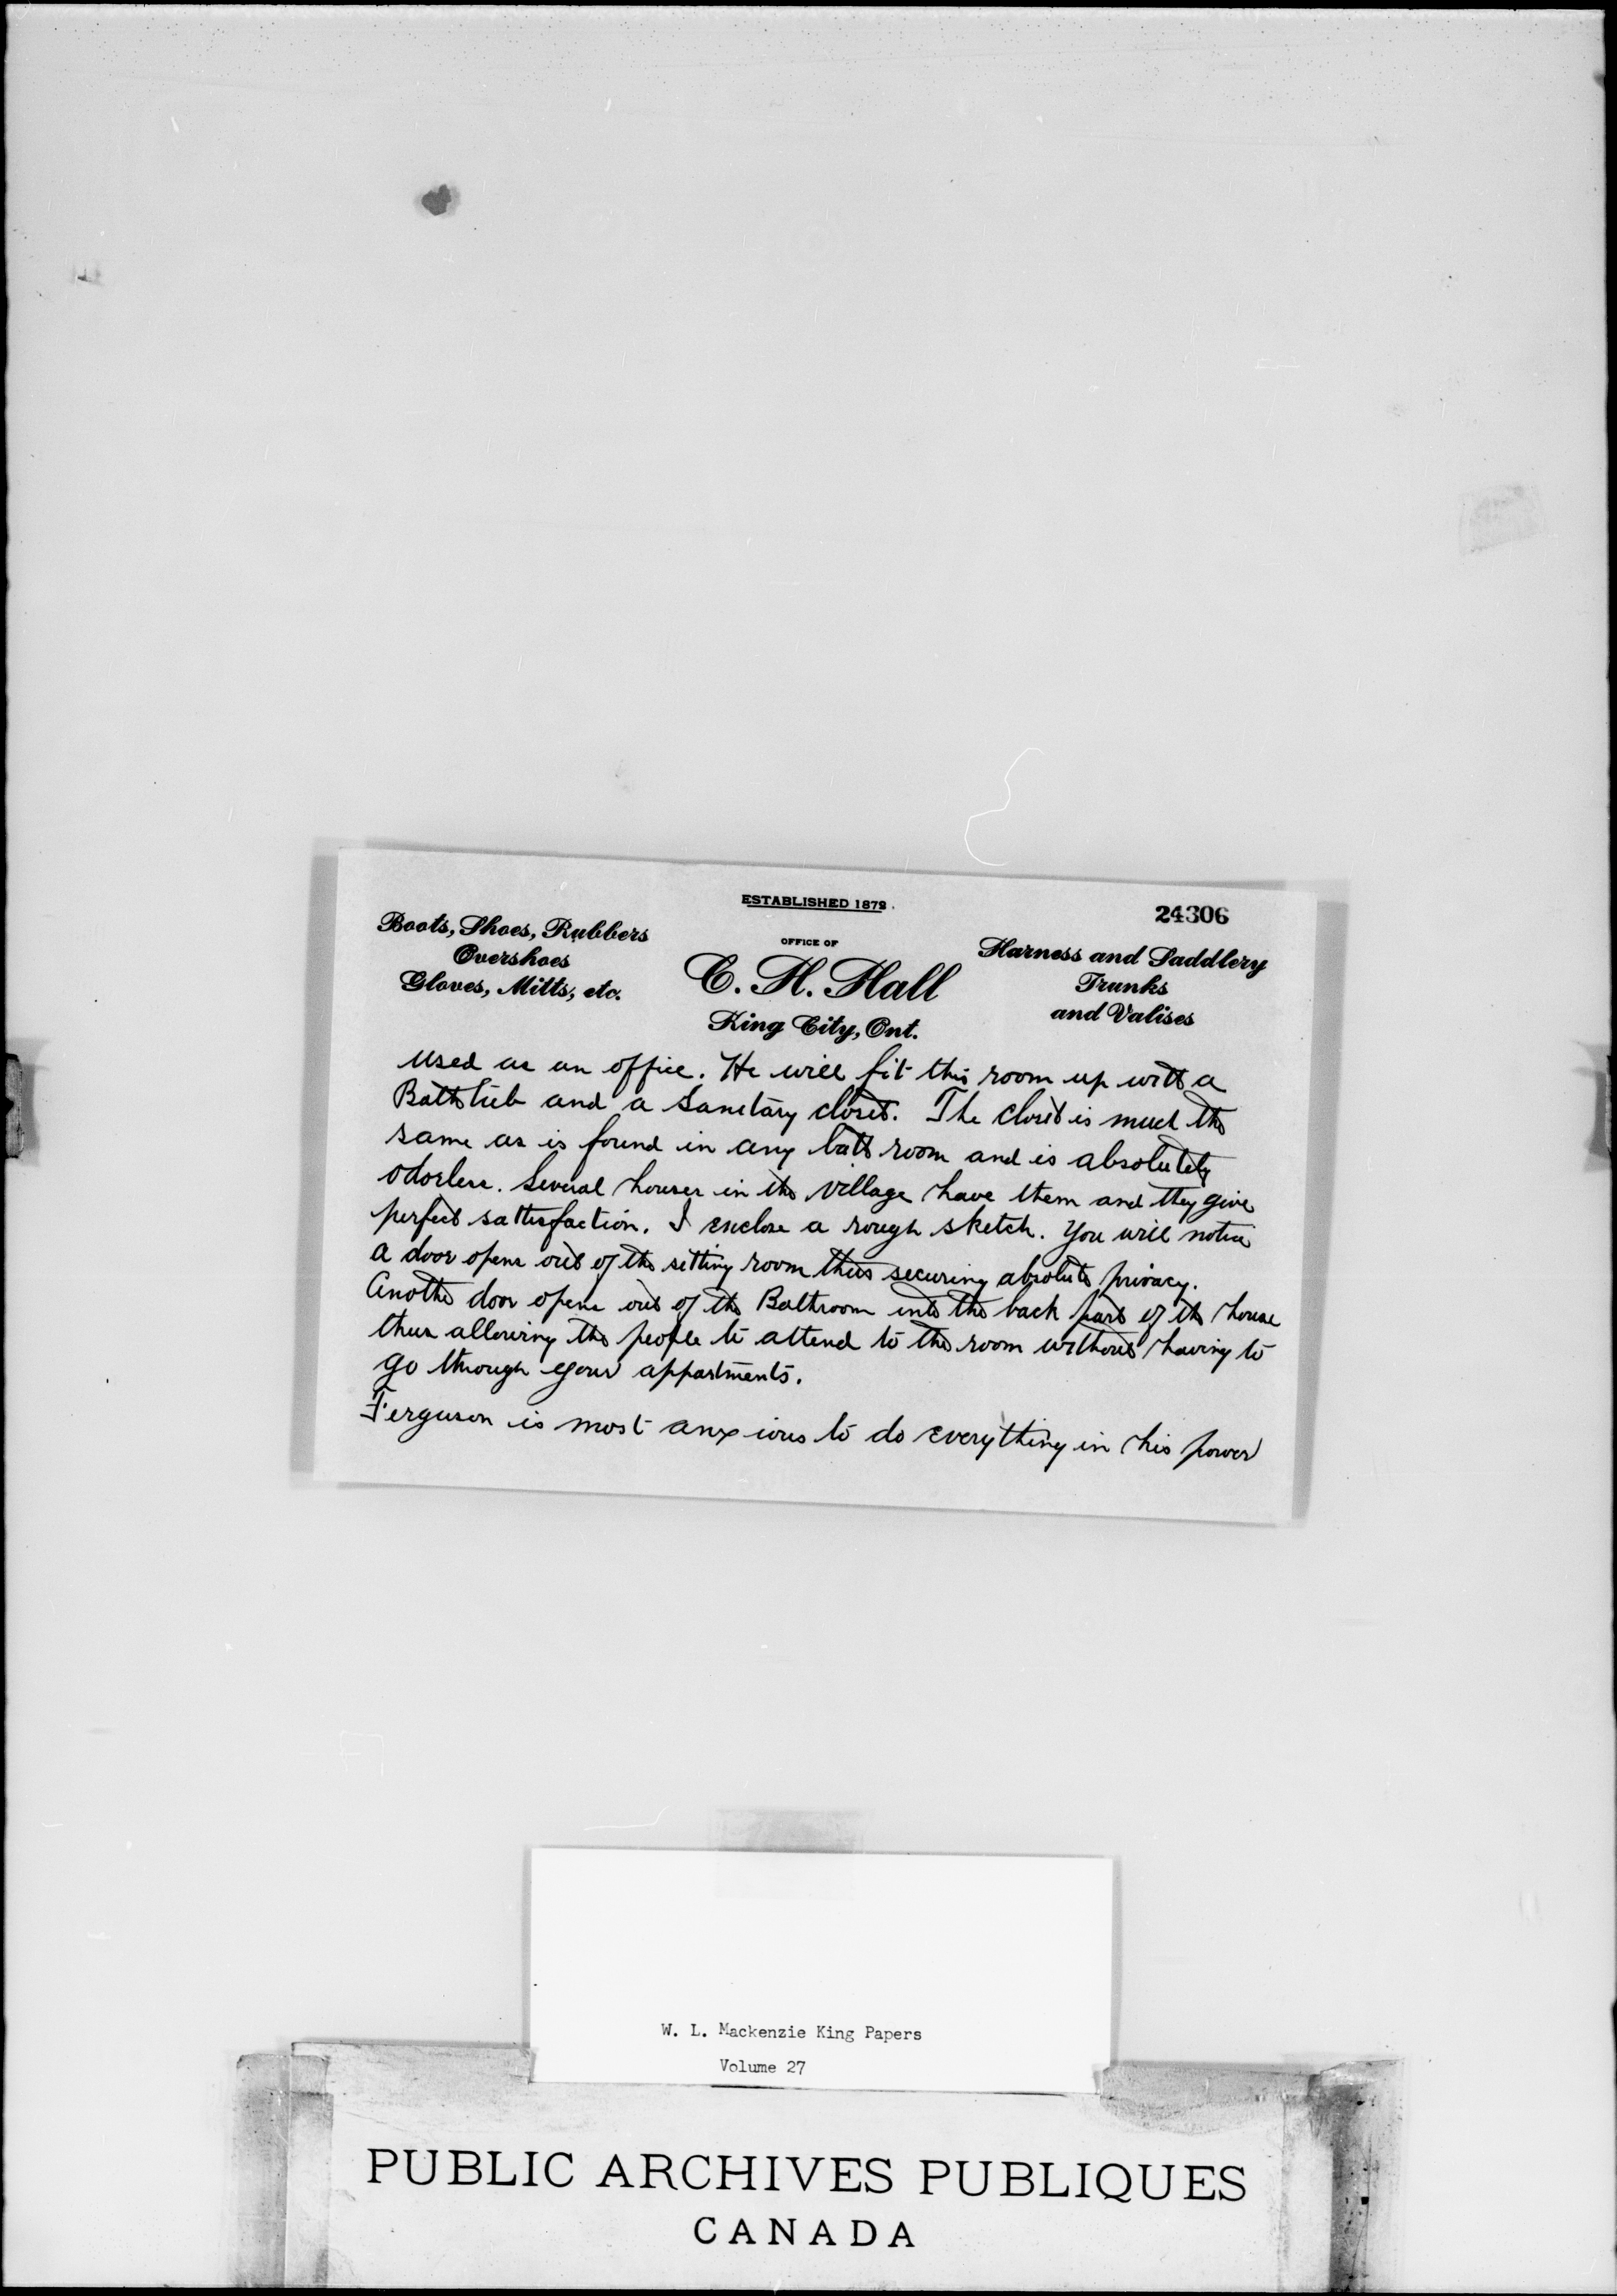 ESTABLISHED 1879.
24306
Boots, Shoes, Rubbers
Overshoes
Gloves, Mitts, etc.
OFFICE OF
C. H. Hall
King City, Ont.
Harness and Saddlery
Trunks
and Valises
used as an office. He will fit this room up with a
Bathtub and a Sanetary closet. The closet is much the
same as is found in any bath room and is absolutely
odorless. Several houses in the village have them and they give
perfect sattisfaction. I enclose a rough sketch. You will notice
a door opens out of the setting room thus securing absolute privacy.
Another door opens out of the Bathroom into the back part of the house
thus allowing the people to attend to the room without having to
go through your appartments.
Ferguson is most anxious to do everything in his power
W. L. Mackenzie King Papers
Volume 27
PUBLIC ARCHIVES PUBLIQUES
CANADA